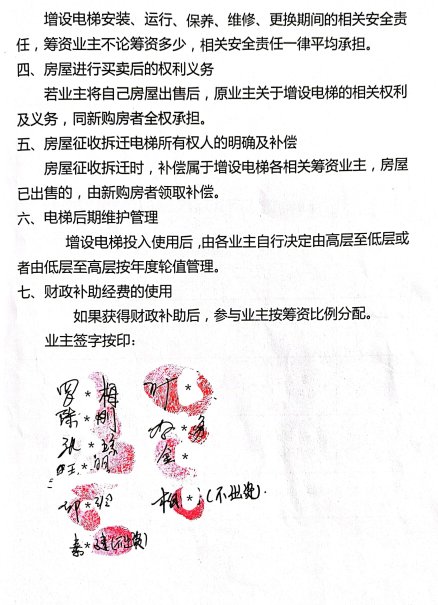 增设电梯安装、运行、保养、维修、更换期间的相关安全责
任，筹资业主不论筹资多少，相关安全责任一律平均承担。
四、房屋进行买卖后的权利义务
若业主将自己房屋出售后，原业主关于增设电梯的相关权利
及义务，同新购房者全权承担。
五、房屋征收拆迁电梯所有权人的明确及补偿
房屋征收拆迁时，补偿属于增设电梯各相关筹资业主，房屋
已出售的，由新购房者领取补偿。
六、电梯后期维护管理
增设电梯投入使用后，由各业主自行决定由高层至低层或
者由低层至高层按年度轮值管理。
七、财政补助经费的使用
如果获得财政补助后，参与业主按筹资比例分配。
业主签字按印：
罗*梅 叶*
陈*刚
*
汪*明 金*
*
*(不出资)
秦*建(不出资)